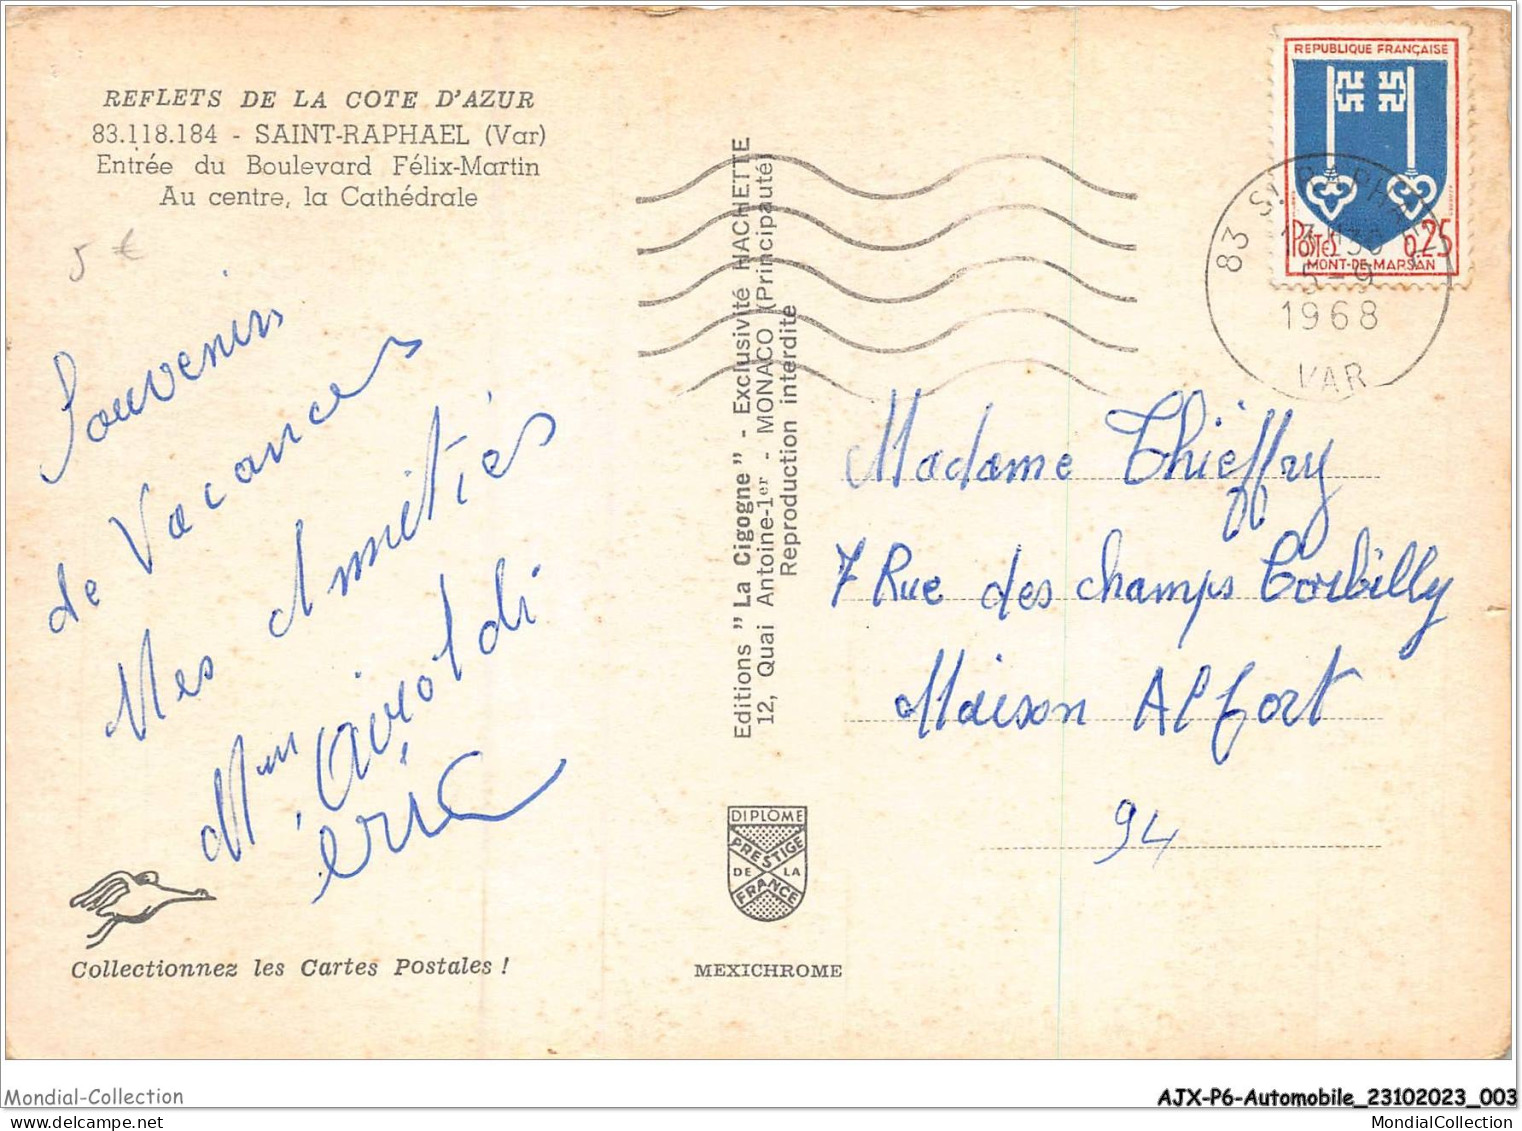 REFLETS DE LA COTE D'AZUR
83.118.184 - SAINT-RAPHAEL (Var)
Entrée du Boulevard Félix-Martin
Au centre, la Cathédrale
5 €
Souvenirs
de Vacances
Mes Amitiés
airoldi
eric
Collectionnez les Cartes Postales !
Editions "La Cigogne" - Exclusivité HACHETTE
12, Quai Antoine-1er - MONACO (Principauté)
Reproduction interdite
DIPLÔME
PRESTIGE
DE LA
FRANCE
MEXICHROME
REPUBLIQUE FRANÇAISE
POSTES 0,25
MONT-DE-MARSAN
83 ST RAPHAEL
5-9
1968
VAR
Madame Thieffry
7 Rue des champs Corbilly
Maison Alfort
94
Mondial-Collection
AJX-P6-Automobile_23102023_003
MondialCollection